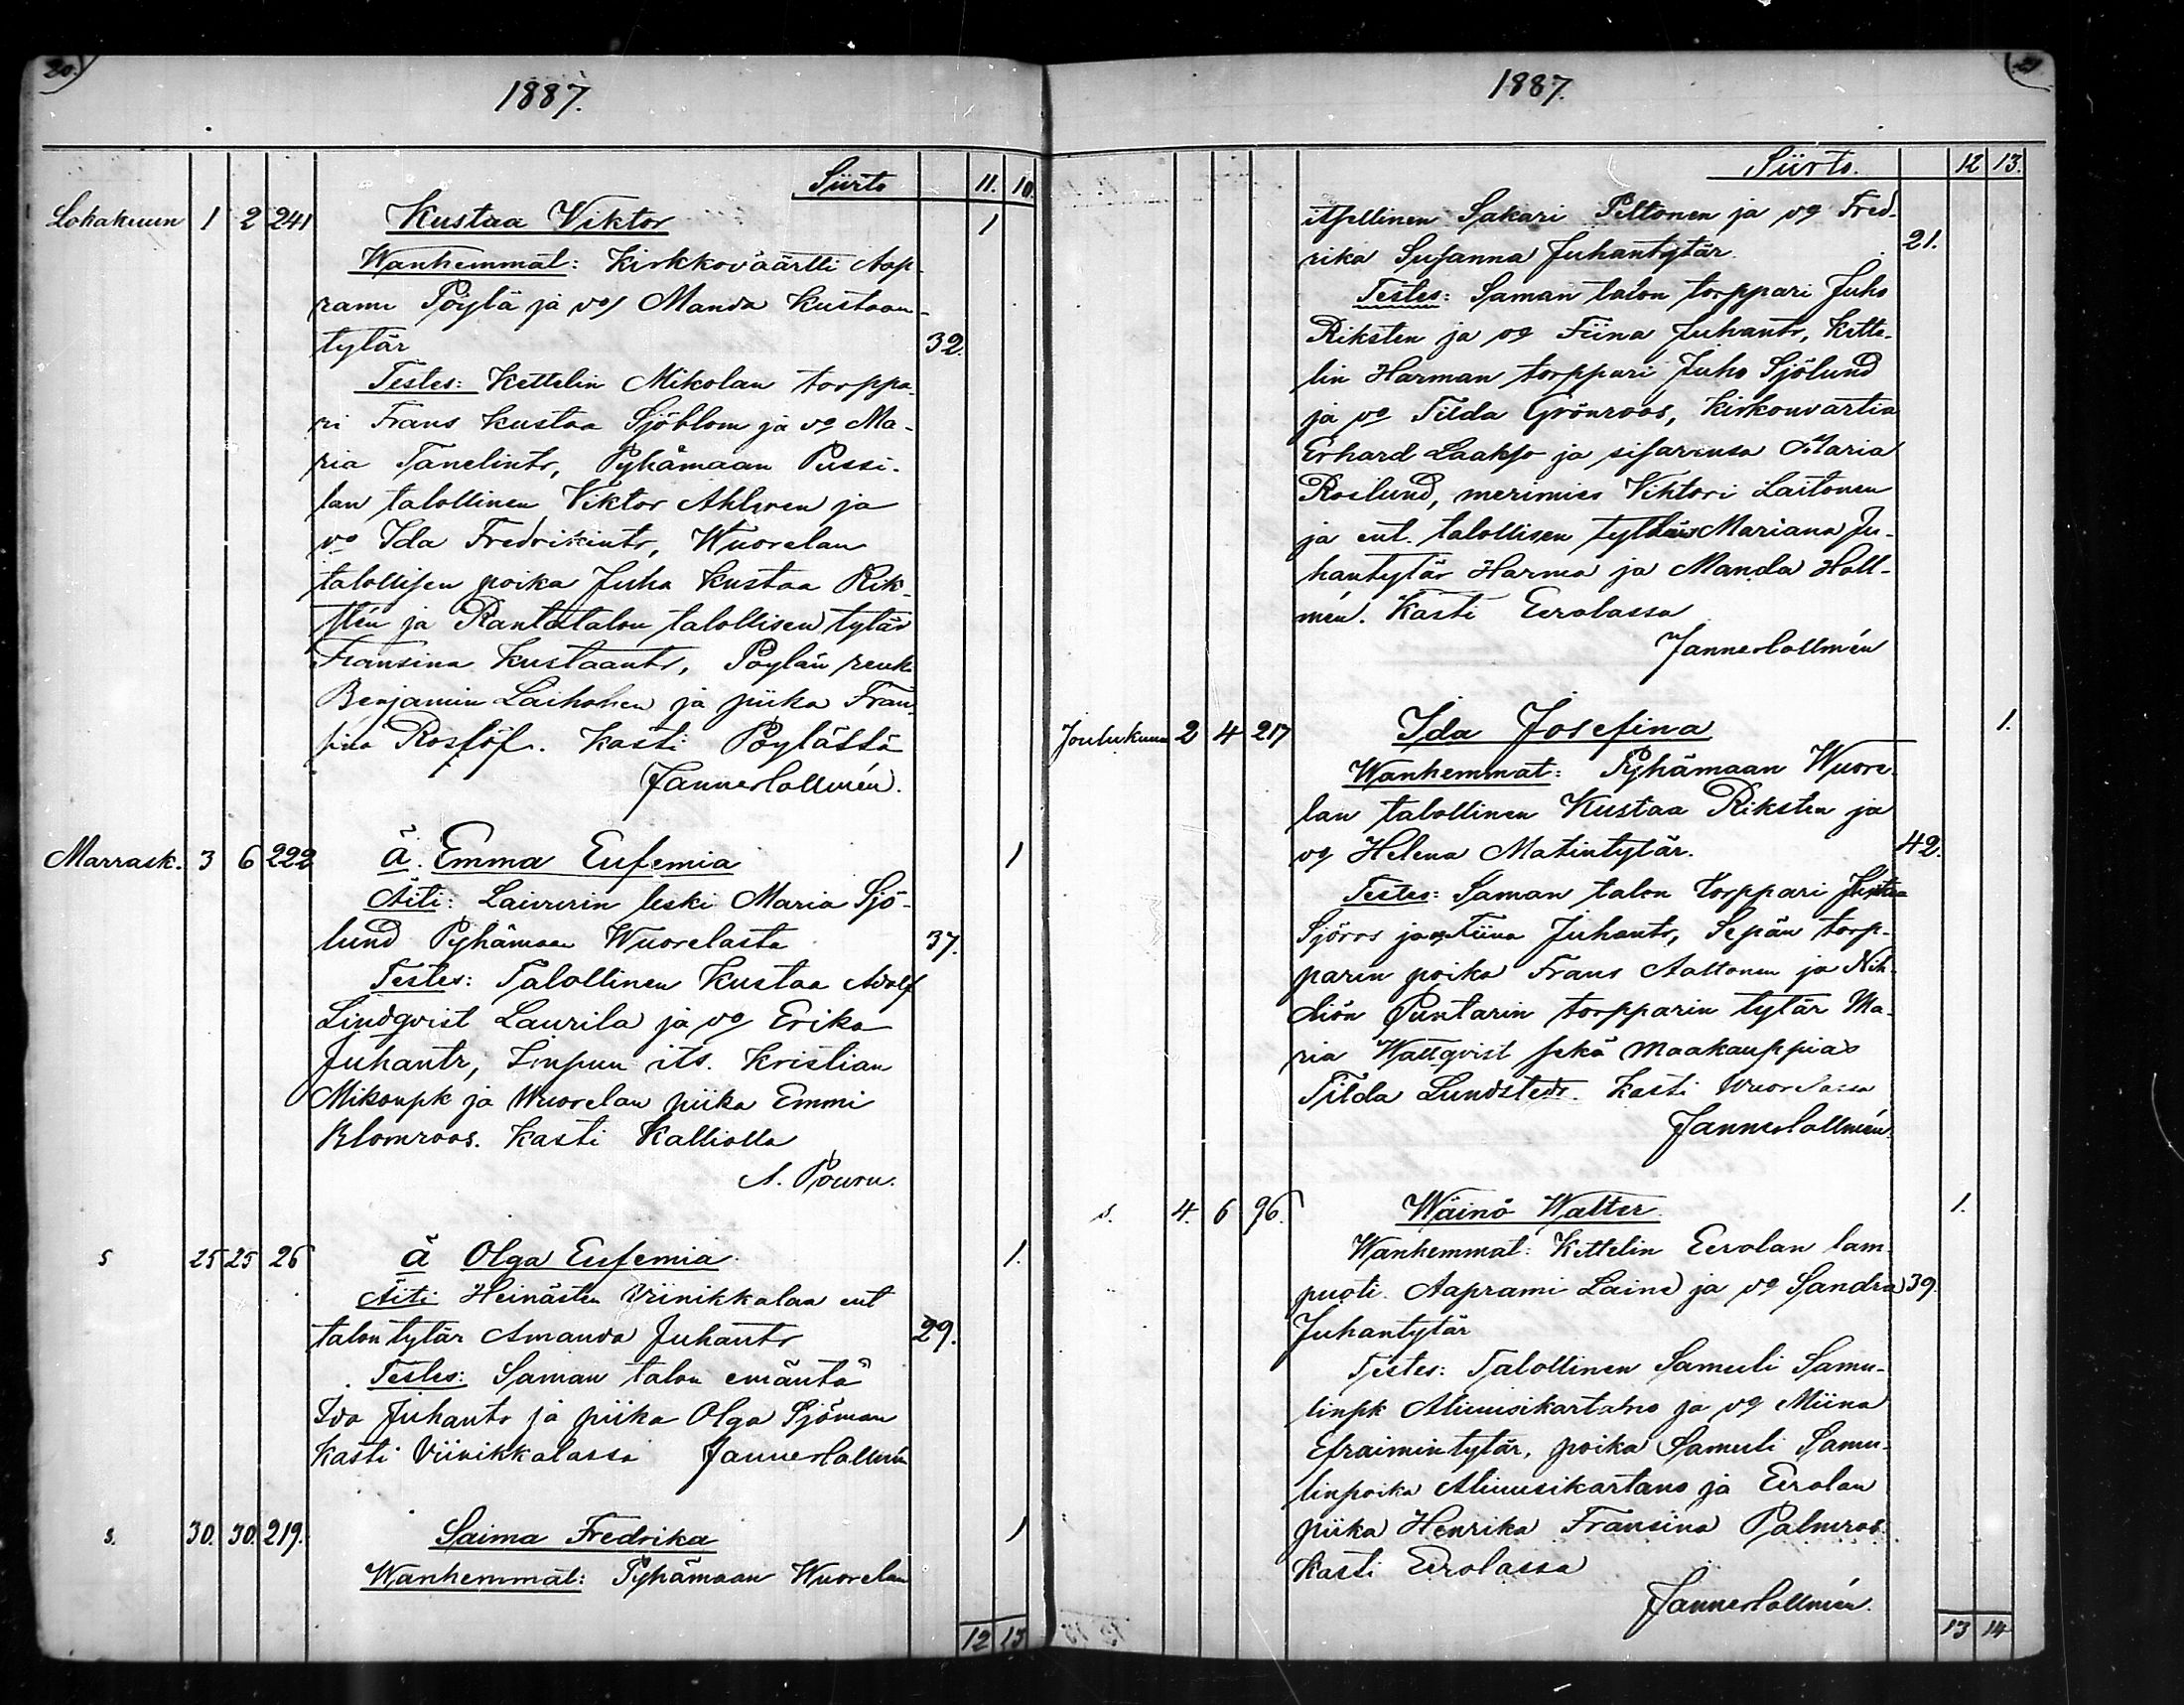 20.
1887.
Siirto 11. 10.
Lokakuun 1 2 241 Kustaa Viktor 1
Wanhemmat: Kirkkoväärtti Aap-
rami Pöylä ja vo Manda Kustaan-
tytär 32.
Testes: Kettelin Mikolan torppa-
ri Frans Kustaa Sjöblom ja vo Ma-
ria Tanelintr, Pyhämaan Pussi-
lan talollinen Viktor Ahlgren ja
vo Ida Fredrikintr, Wuorelan
talollisen poika Juha Kustaa Rik-
stén ja Rantatalon talollisen tytär
Fransina Kustaantr, Pöylän renki
Benjamin Laihonen ja piika Fran-
sina Roslöf. Kasti Pöylässä
Janne Hollmén.
Marrask. 3 6 222 ä. Emma Eufemia 1
Äiti: Laivurin leski Maria Sjö-
lund Pyhämaan Wuorelasta 37.
Testes: Talollinen Kustaa Adolf
Lindqvist Laurila ja vo Erika
Juhantr, its. Kristian
Mikonpk ja Wuorelan piika Emmi
Blomroos. Kasti Kalliolla
A. Pouru.
s 25 25 26 ä Olga Eufemia 1.
Äiti Heinästen Viinikkalan ent
talon tytär Amanda Juhantr 29.
Testes: Saman talon emäntä
Ida Juhantr ja piika Olga Sjöman
Kasti Viinikkalassa Janne Hollmén
s. 30. 30. 219. Saima Fredrika 1
Wanhemmat: Pyhämaan Wuorelan
12 13
21
1887.
Siirto. 12 13.
itsellinen Sakari Peltonen ja vo Fred-
rika Susanna Juhantytär. 21.
Testes: Saman talon torppari Juho
Riksten ja vo Fiina Juhantr, Kette-
lin Harman torppari Juho Sjölund
ja vo Tilda Grönroos, Kirkonvartia
Erhard Laakso ja sisarensa Maria
Roslund, merimies Vihtori Laitonen
ja ent. talollisen tyttäret Mariana Ju-
hantytär Harma ja Manda Holl-
mén. Kasti Eerolassa
Janne Hollmén
Joulukuun 2 4 217 Ida Josefina 1.
Wanhemmat: Pyhämaan Wuore-
lan talollinen Kustaa Riksten ja
vo Helena Matintytär. 42.
Testes: Saman talon torppari
Sjöros ja vo Fiina Juhantr, Sepän torp-
parin poika Frans Aaltonen ja Nih-
diön Puntarin torpparin tytär Ma-
ria Wallqvist sekä maakauppias
Tilda Lundstedt. Kasti Wuorelassa
Janne Hollmén.
s. 4. 6 96. Wäinö Walter 1.
Wanhemmat: Kettelin Eerolan lam-
puoti Aaprami Laine ja vo Sandra 39.
Juhantytär
Testes: Talollinen Samuli Samu-
linpk Aliuusikartano ja vo Miina
Efraimintytär, poika Samuli Samu-
linpoika Aliuusikartano ja Eerolan
piika Henrika Fransina Palmros.
Kasti Eerolassa
Janne Hollmén.
13 14